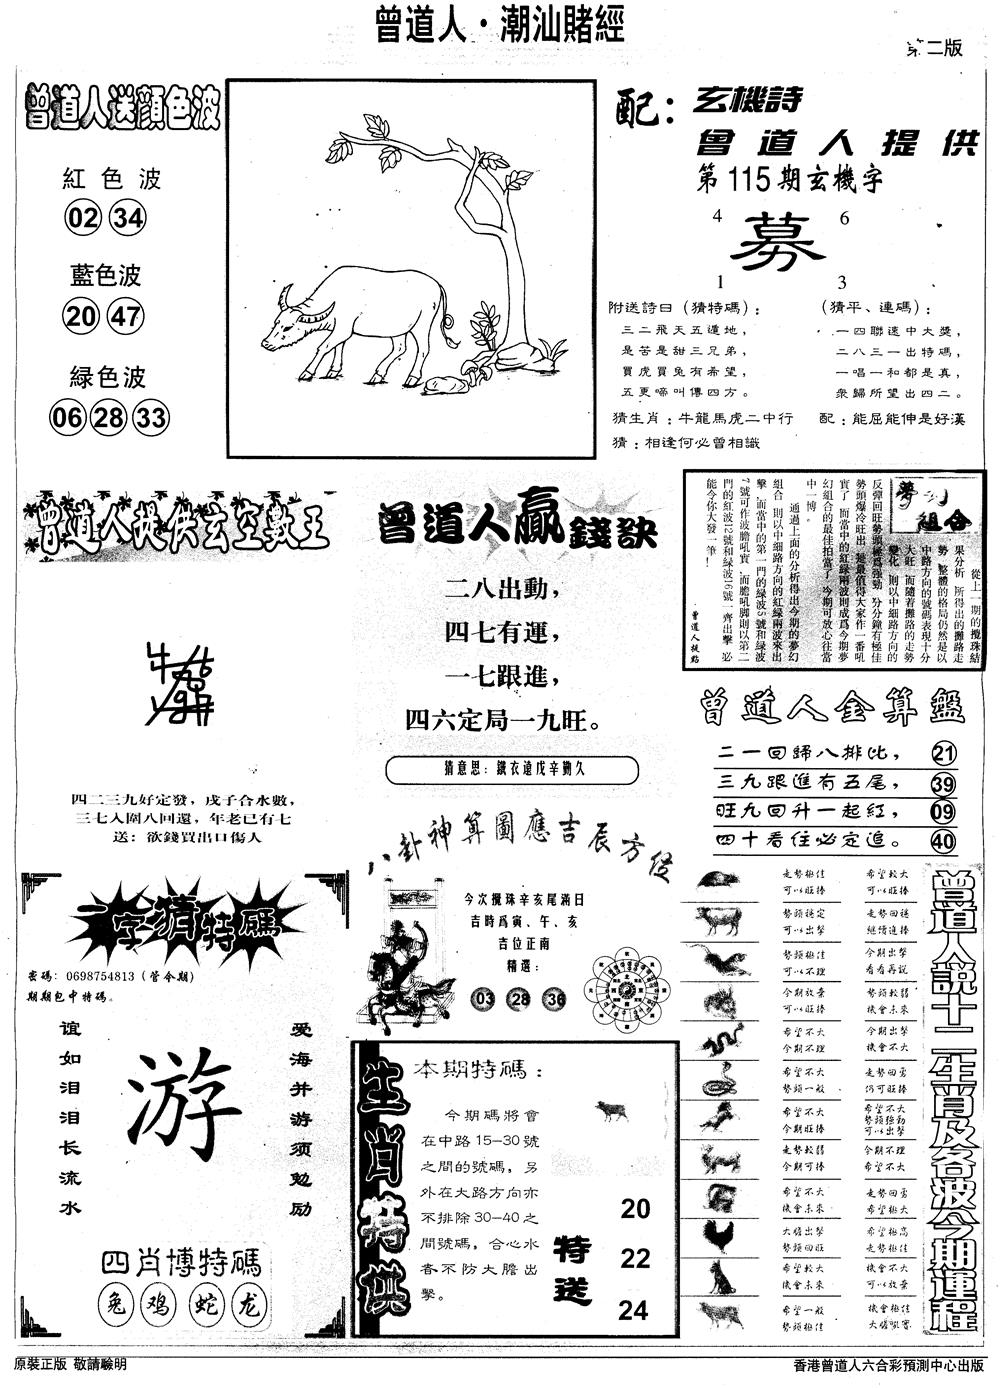 曾道人·潮汕賭經
第二版
曾道人送顏色波
紅色波
02 34
藍色波
20 47
緑色波
06 28 33
配：玄機詩
曾道人提供
第115期玄機字
4 6
募
1 3
附送詩曰（猜特碼）：
三二飛天五遁地，
是苦是甜三兄弟，
買虎買兔有希望，
五更啼叫傳四方。
（猜平、連碼）：
一四聯速中大獎，
二八三一出特碼，
一唱一和都是真，
衆歸所望出四二。
猜生肖：牛龍馬虎二中行
配：能屈能伸是好漢
猜：相逢何必曾相識
曾道人提供玄空數王
四二三九好定發，戌子合水數，
三七入圍八回還，年老已有七
送：欲錢買出口傷人
曾道人贏錢訣
二八出動，
四七有運，
一七跟進，
四六定局一九旺。
猜意思：鐵衣遠戍辛勤久
夢幻組合
從上一期的攪珠結
果分析，所得出的攤路走
勢，整體的格局仍然是以
中路方向的號碼表現十分
大旺，而隨着攤路的走勢
變化，則以中細路方向的
反彈回旺勢頭極爲強勁，分分鐘有極佳
勢頭爆冷旺出，是最值得大家作一番吼
實了，而當中的紅緑兩波則成爲今期夢
幻組合的最佳拍當了，今期可放心往當
中一博。
通過上面的分析得出今期的夢幻
組合，則以中細路方向的紅緑兩波來出
擊，而當中的第一門的緑波5號和緑波
7號可作波膽吼實，而膽吼脚則以第二
門的紅波12號和緑波16號一齊出擊，必
能令你大發一筆！
曾道人提點
曾道人金算盤
二一回歸八排比， 21
三九跟進有五尾， 39
旺九回升一起紅， 09
四十看住必定追。 40
八卦神算圖應吉辰方位
今次攪珠辛亥尾滿日
吉時爲寅、午、亥
吉位正南
精選：
03 28 36
一字猜特碼
密碼：0698754813（管今期）
期期包中特碼。
谊如泪泪长流水
游
爱海并游须勉励
四肖博特碼
兔 鸡 蛇 龙
生肖特供
本期特碼：
今期碼將會
在中路15—30號
之間的號碼，另
外在大路方向亦
不排除30—40之
間號碼，合心水
者不防大膽出
擊。
特送
20
22
24
走勢極佳 希望較大
可以旺捧 可以旺捧
勢頭穩定 走勢回穩
可以出擊 繼續進捧
勢頭極佳 今期出擊
可以不理 看看再説
今期放棄 勢頭較弱
可以旺捧 機會未來
希望不大 今期出擊
今期不理 機會不大
希望不大 走勢回勇
勢頭一般 仍可旺捧
希望不大 希望不大
今期旺捧 勢頭強勁
可以出擊
走勢較弱 今期不理
今期可捧 希望不大
希望不大 走勢回勇
機會未來 希望極大
大膽出擊 希望極高
勢頭回旺 走勢極佳
希望較大 機會不大
機會未來 可以放棄
希望一般 機會極佳
勢頭極佳 大膽吼實
曾道人説十二生肖及各波今期運程
原裝正版 敬請驗明
香港曾道人六合彩預測中心出版